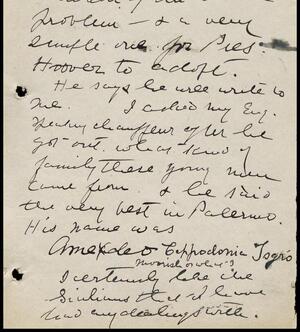 problem - & a very
simple one for Pres.
Hoover to adopt.
He says he will write to
me. I asked my Eng.
speaking chauffeur after he
got out what kind of
family these young men
came from & he said
the very best in Palermo.
His name was
Amedeo
I certainly like the
Sicilians that I have
had any dealings with.